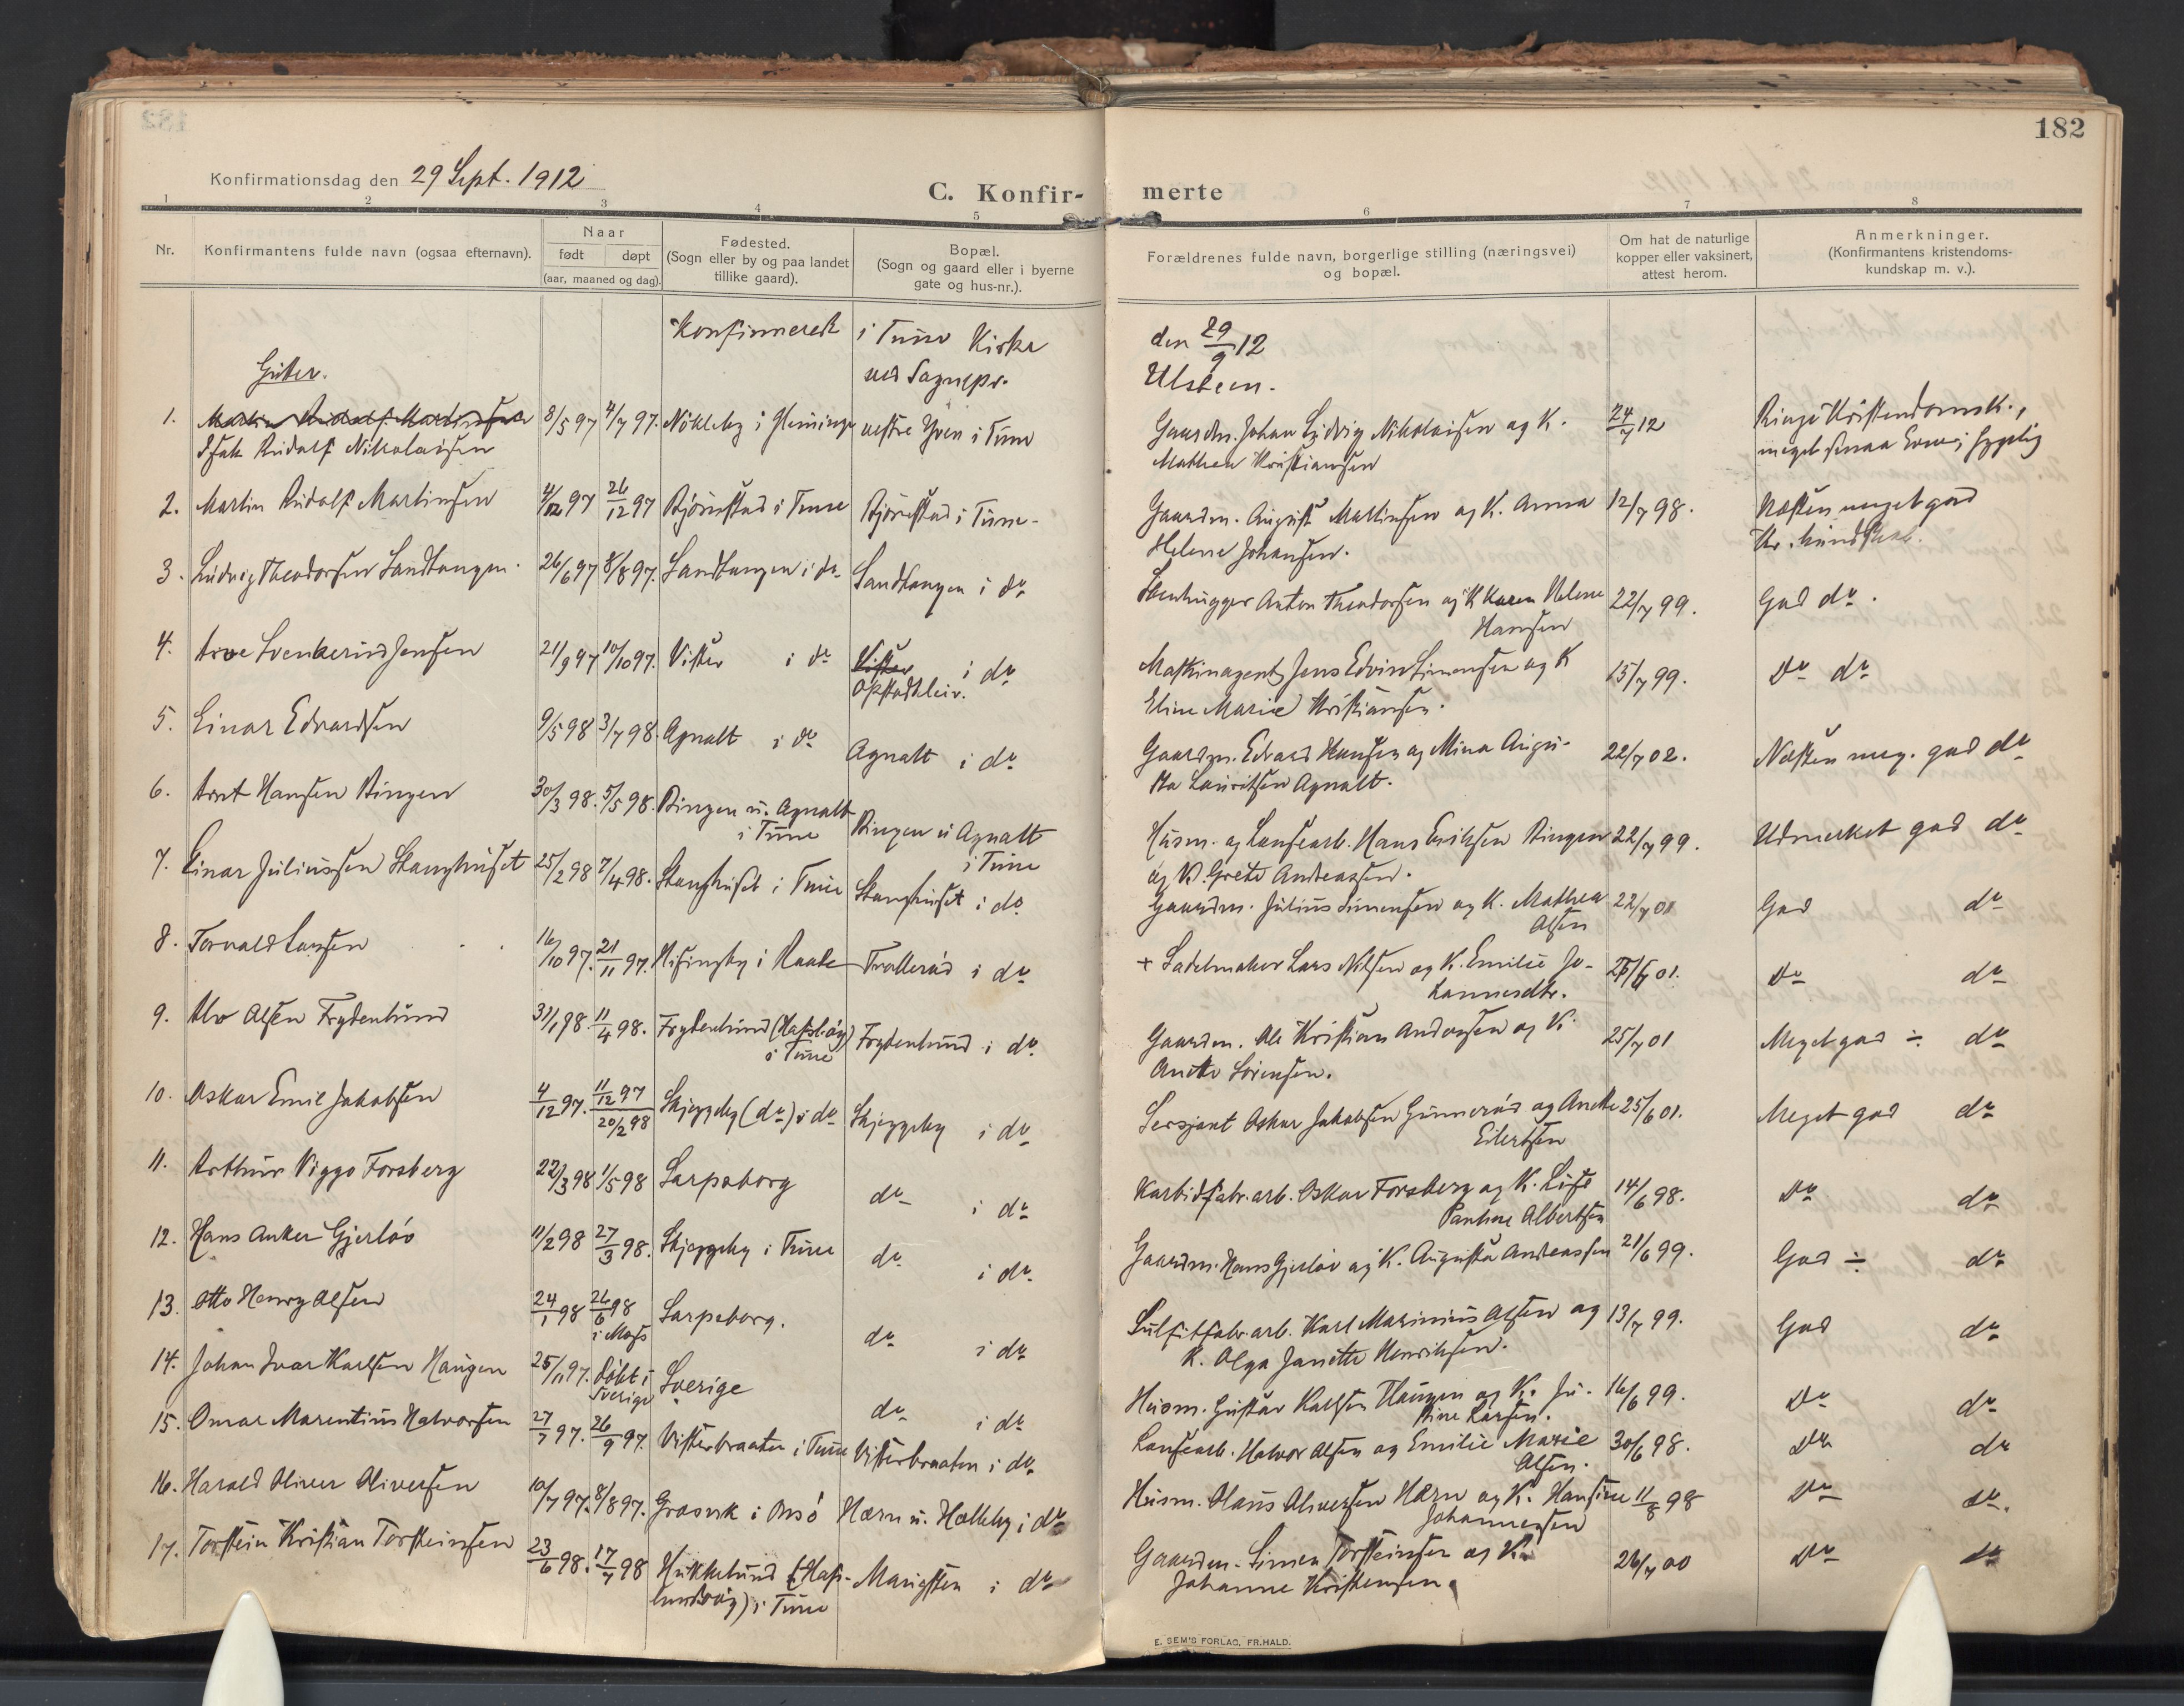 182
Konfirmationsdag den 29 Sept. 1912
C. Konfir- merte
1 2 3 4 5 6 7 8
Nr.
Konfirmantens fulde navn (ogsaa efternavn).
Naar
født døpt
(aar, maaned og dag).
Fødested.
(Sogn eller by og paa landet
tillike gaard).
Bopæl.
(Sogn og gaard eller i byerne
gate og hus-nr.).
Forældrenes fulde navn, borgerlige stilling (næringsvei)
og bopæl.
Om hat de naturlige
kopper eller vaksinert,
attest herom.
Anmerkninger.
(Konfirmantens kristendoms-
kundskap m. v.).
Konfirmeret i Tune Kirke den 29/9 12
Gutter. ved Sognepr. Ulsteen.
1. Martin Rudolf Martinsen 8/5 97 4/7 97. Nökleby i Glemminge vestre Yven i Tune Gaardm. Johan Ludvig Nikolaisen og K. 24/7 12 Ringe Kristendomsk.,
Isak Rudolf Nikolaisen Mathea Kristiansen meget smaa Evner; sygelig
2. Martin Rudolf Martinsen 4/12 97 26/12 97 Bjørnstad i Tune Bjørnstad i Tune. Gaardm. August Martinsen og K. Anna 12/7 98. Næsten meget god
Helene Johansen. Kr. kundskab.
3. Ludvig Theodorsen Sandtangen. 26/6 97 8/8 97. Sandtangen i do. Sandtangen i do Stenhugger Anton Theodorsen og K Karen Helene 22/7 99. God do.
Hansen
4. Arve Svenkerud Jensen 21/9 97 10/10 97. Vister i do Vister i do Maskinagent Jens Edvin Simensen og K 15/7 99. Do do
Opstadkleiv. Eline Marie Kristiansen.
5. Einar Edvardsen 9/5 98 3/7 98. Agnalt i do Agnalt i do. Gaardm. Edvard Hansen og Mina Augu- 22/7 02. Næsten meg. god do
sta Lauritsen Agnalt.
6. Arnt Hansen Ringen 30/3 98. 5/5 98. Ringen u. Agnalt Ringen u Agnalt Husm. og Lensearb. Hans Eriksen Ringen 22/7 99. Udmerket god do
i Tune i Tune og K. Grete Andreassen.
7. Einar Juliussen Stanghuset 25/2 98 7/4 98. Stanghuset i Tune Stanghuset i do. Gaardm. Julius Simensen og K. Mathea 22/7 01 God do
Olsen
8. Torvald Larsen 16/10 97. 21/11 97. Huseby i Raade Trollerud i do + Sadelmaker Lars Nilsen og K. Emilie Jo- 01. Do do
hannesdtr.
9. Alv Olsen Frydenlund 31/1 98. 11/4 98. Frydenlund (Hafslund) Frydenlund i do. Gaardm. Ole Kristian Andersen og K. 25/7 01 Meget god ÷ do
i Tune Anette Sörensen.
10. Oskar Emil Jakobsen 4/12 97. 11/12 97 Skjeggeby (do) i do Skjeggeby i do Sersjant Oskar Jakobsen Gunnerød og Anette 25/6 01. Meget god do
20/2 98 Eilertsen
11. Arthur Viggo Forsberg 22/3 98 1/5 98 Sarpsborg do i do Karbidfabr.arb. Oskar Forsberg og K. Lise 14/6 98. Do do
Pauline Albertsen
12. Hans Anker Gjerløv 11/2 98 27/3 98. Skjeggeby i Tune do. i do. Gaardm. Hans Gjerløv og K. Augusta Andreassen 21/6 99. God ÷ do
13. Otto Henry Olsen 24/1 98 26/6 98 Sarpsborg. do i do Sulfitfabr.arb. Karl Marinius Olsen og 13/7 99. God do
i Moss K. Olga Janette Henriksen.
14. Johan Ivar Karlsen Haugen 25/11 97. Døbt i Sverige do i do Husm. Gustav Karlsen Haugen og K. Ju- 16/6 99. Do do
Sverige stine Larsen.
15. Omar Marentius Halvorsen 27/7 97. 26/9 97. Visterbraaten i Tune Visterbraaten i do. Lensearb. Halvor Olsen og Emilie Marie 30/6 98. Do do
Olsen.
16. Harald Oliver Oliversen 10/7 97. 8/8 97. Græsvik i Onsö Hærn u. Hølleby i do Husm. Olaus Oliversen Hærn og K. Hansine 11/8 98 Do do.
Johannessen
17. Torstein Kristian Torsteinsen 23/6 98. 17/7 98 Hukkelund (Haf- Mariesten i do Gaardm. Simen Torsteinsen og K. 26/7 00 Do do
lundsøy) i Tune Johanne Kristensen.
E. SEM'S FORLAG, FR.HALD.